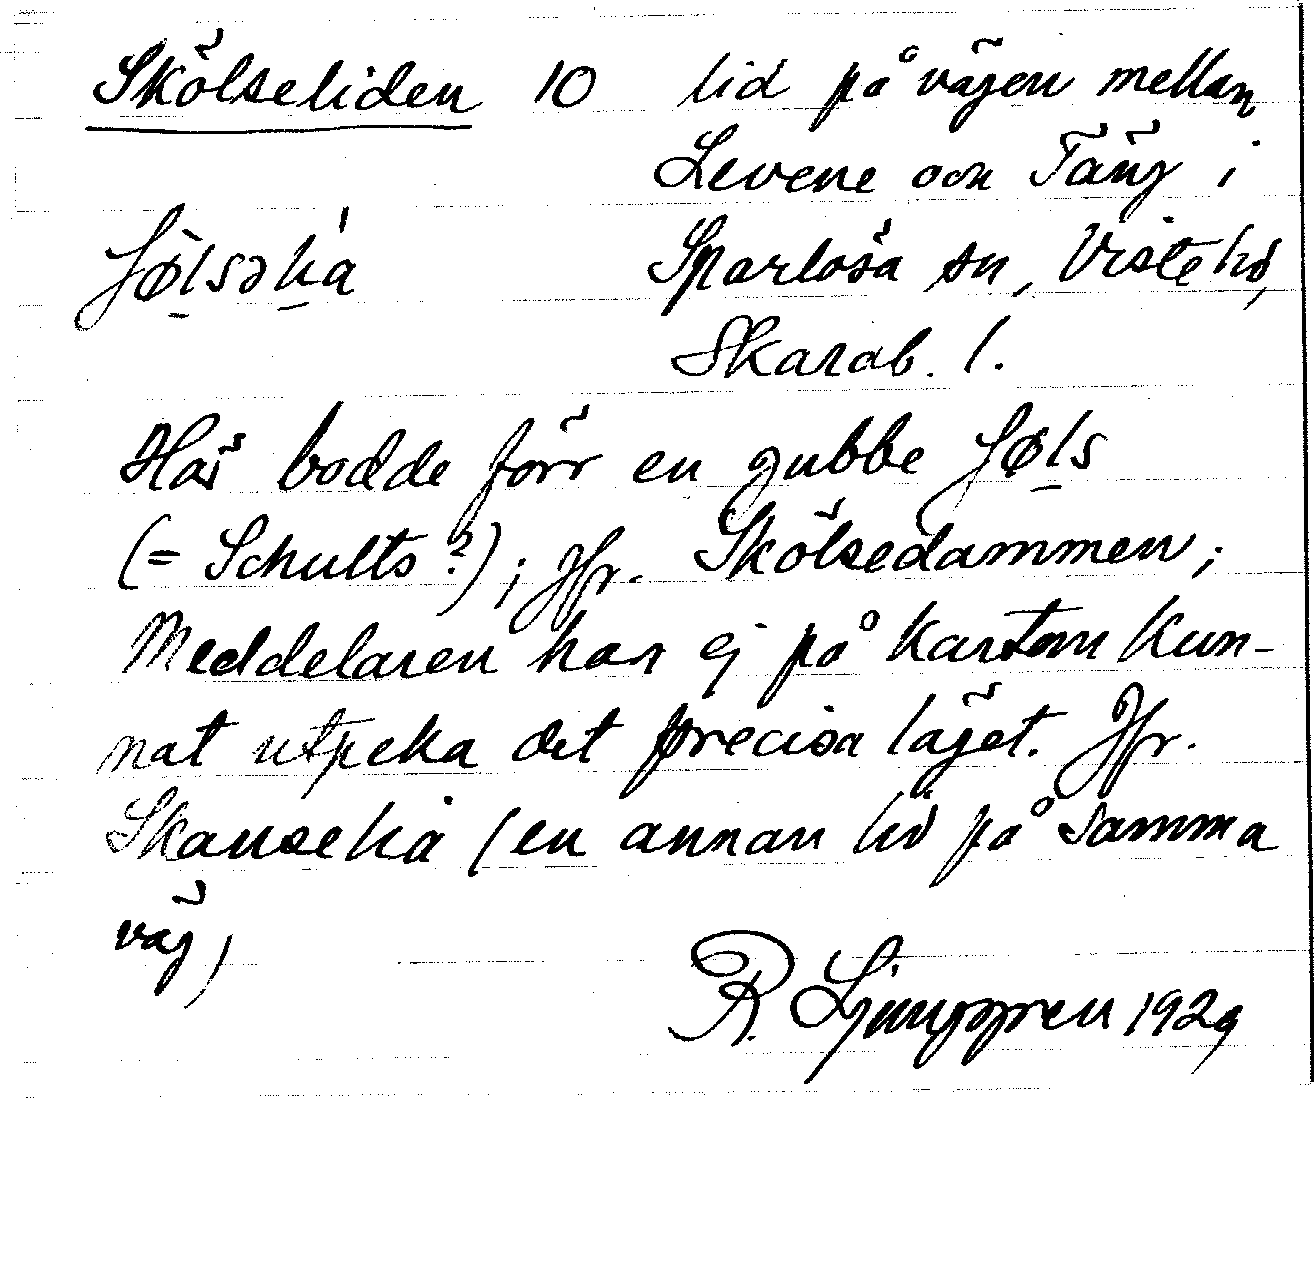 Skölseliden 10 lid på vägen mellan
Levene och Täng i
ʃø̱lsəḻia Sparlösa sn, Viste hd,
Skarab. l.
Här bodde förr en gubbe ʃø̱ls
(= Schults?); Jfr. Skölsedammen;
Meddelaren har ej på kartan kun-
nat utpeka det precisa läget. Jfr.
Skanselia (en annan lid på samma
väg)
R. Ljunggren 1929